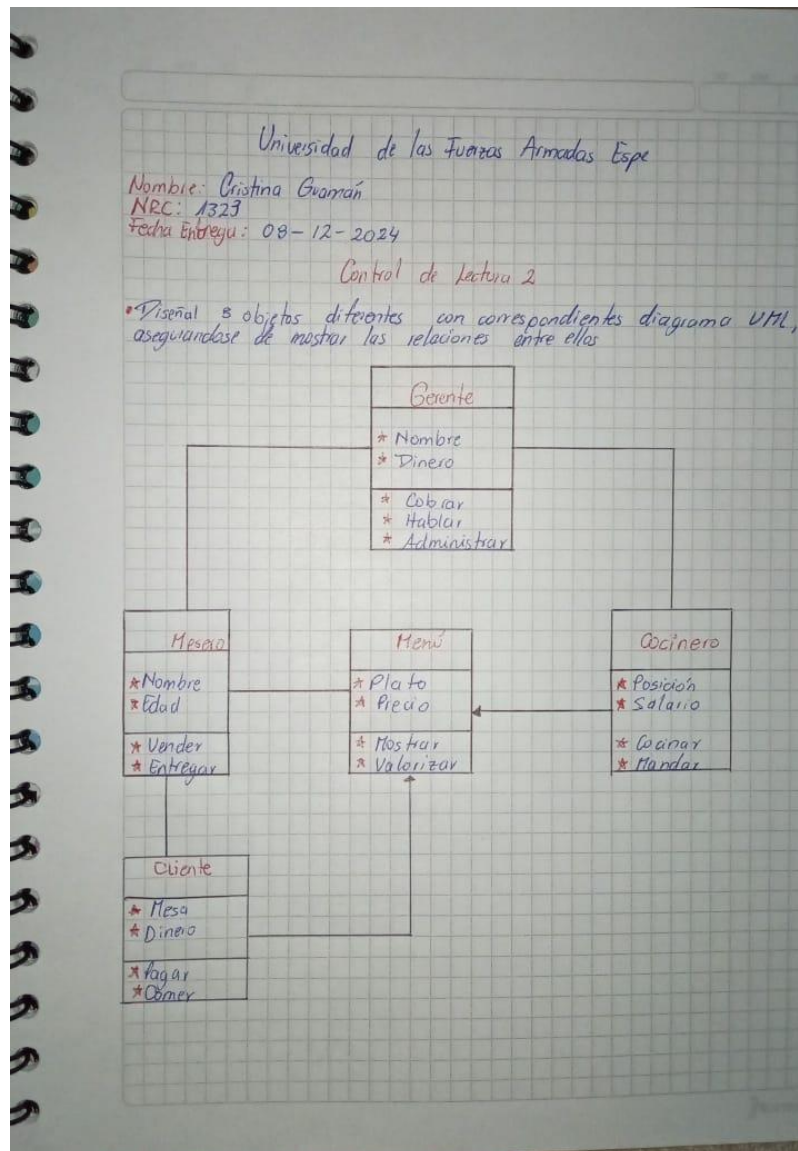 Universidad de las Fuerzas Armadas Espe
Nombre: Cristina Guamán
NRC: 1323
Fecha Entrega: 08-12-2024
Control de Lectura 2
•Diseñal 3 objetos diferentes con correspondientes diagrama UML,
asegurandose de mostrar las relaciones entre ellos
Gerente
* Nombre
* Dinero
* Cobrar
* Hablar
* Administrar
Mesero
* Nombre
* Edad
* Vender
* Entregar
Menú
* Plato
* Precio
* Mostrar
* Valorizar
Cocinero
* Posición
* Salario
* Cocinar
* Mandar
Cliente
* Mesa
* Dinero
* Pagar
* Comer